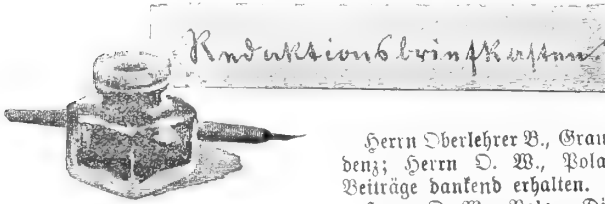 Redaktionsbriefkasten
Herrn Oberlehrer B., Grau-
denz; Herrn O. W., Pola.
Beiträge dankend erhalten.